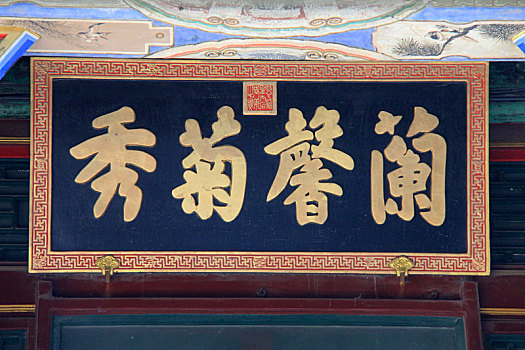 蘭馨菊秀